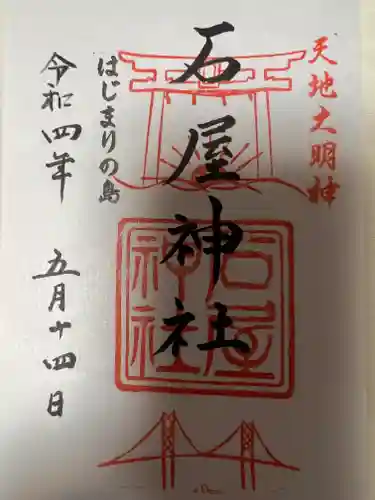 天地大明神
石屋神社
石屋神社
はじまりの島
令和四年 五月十四日